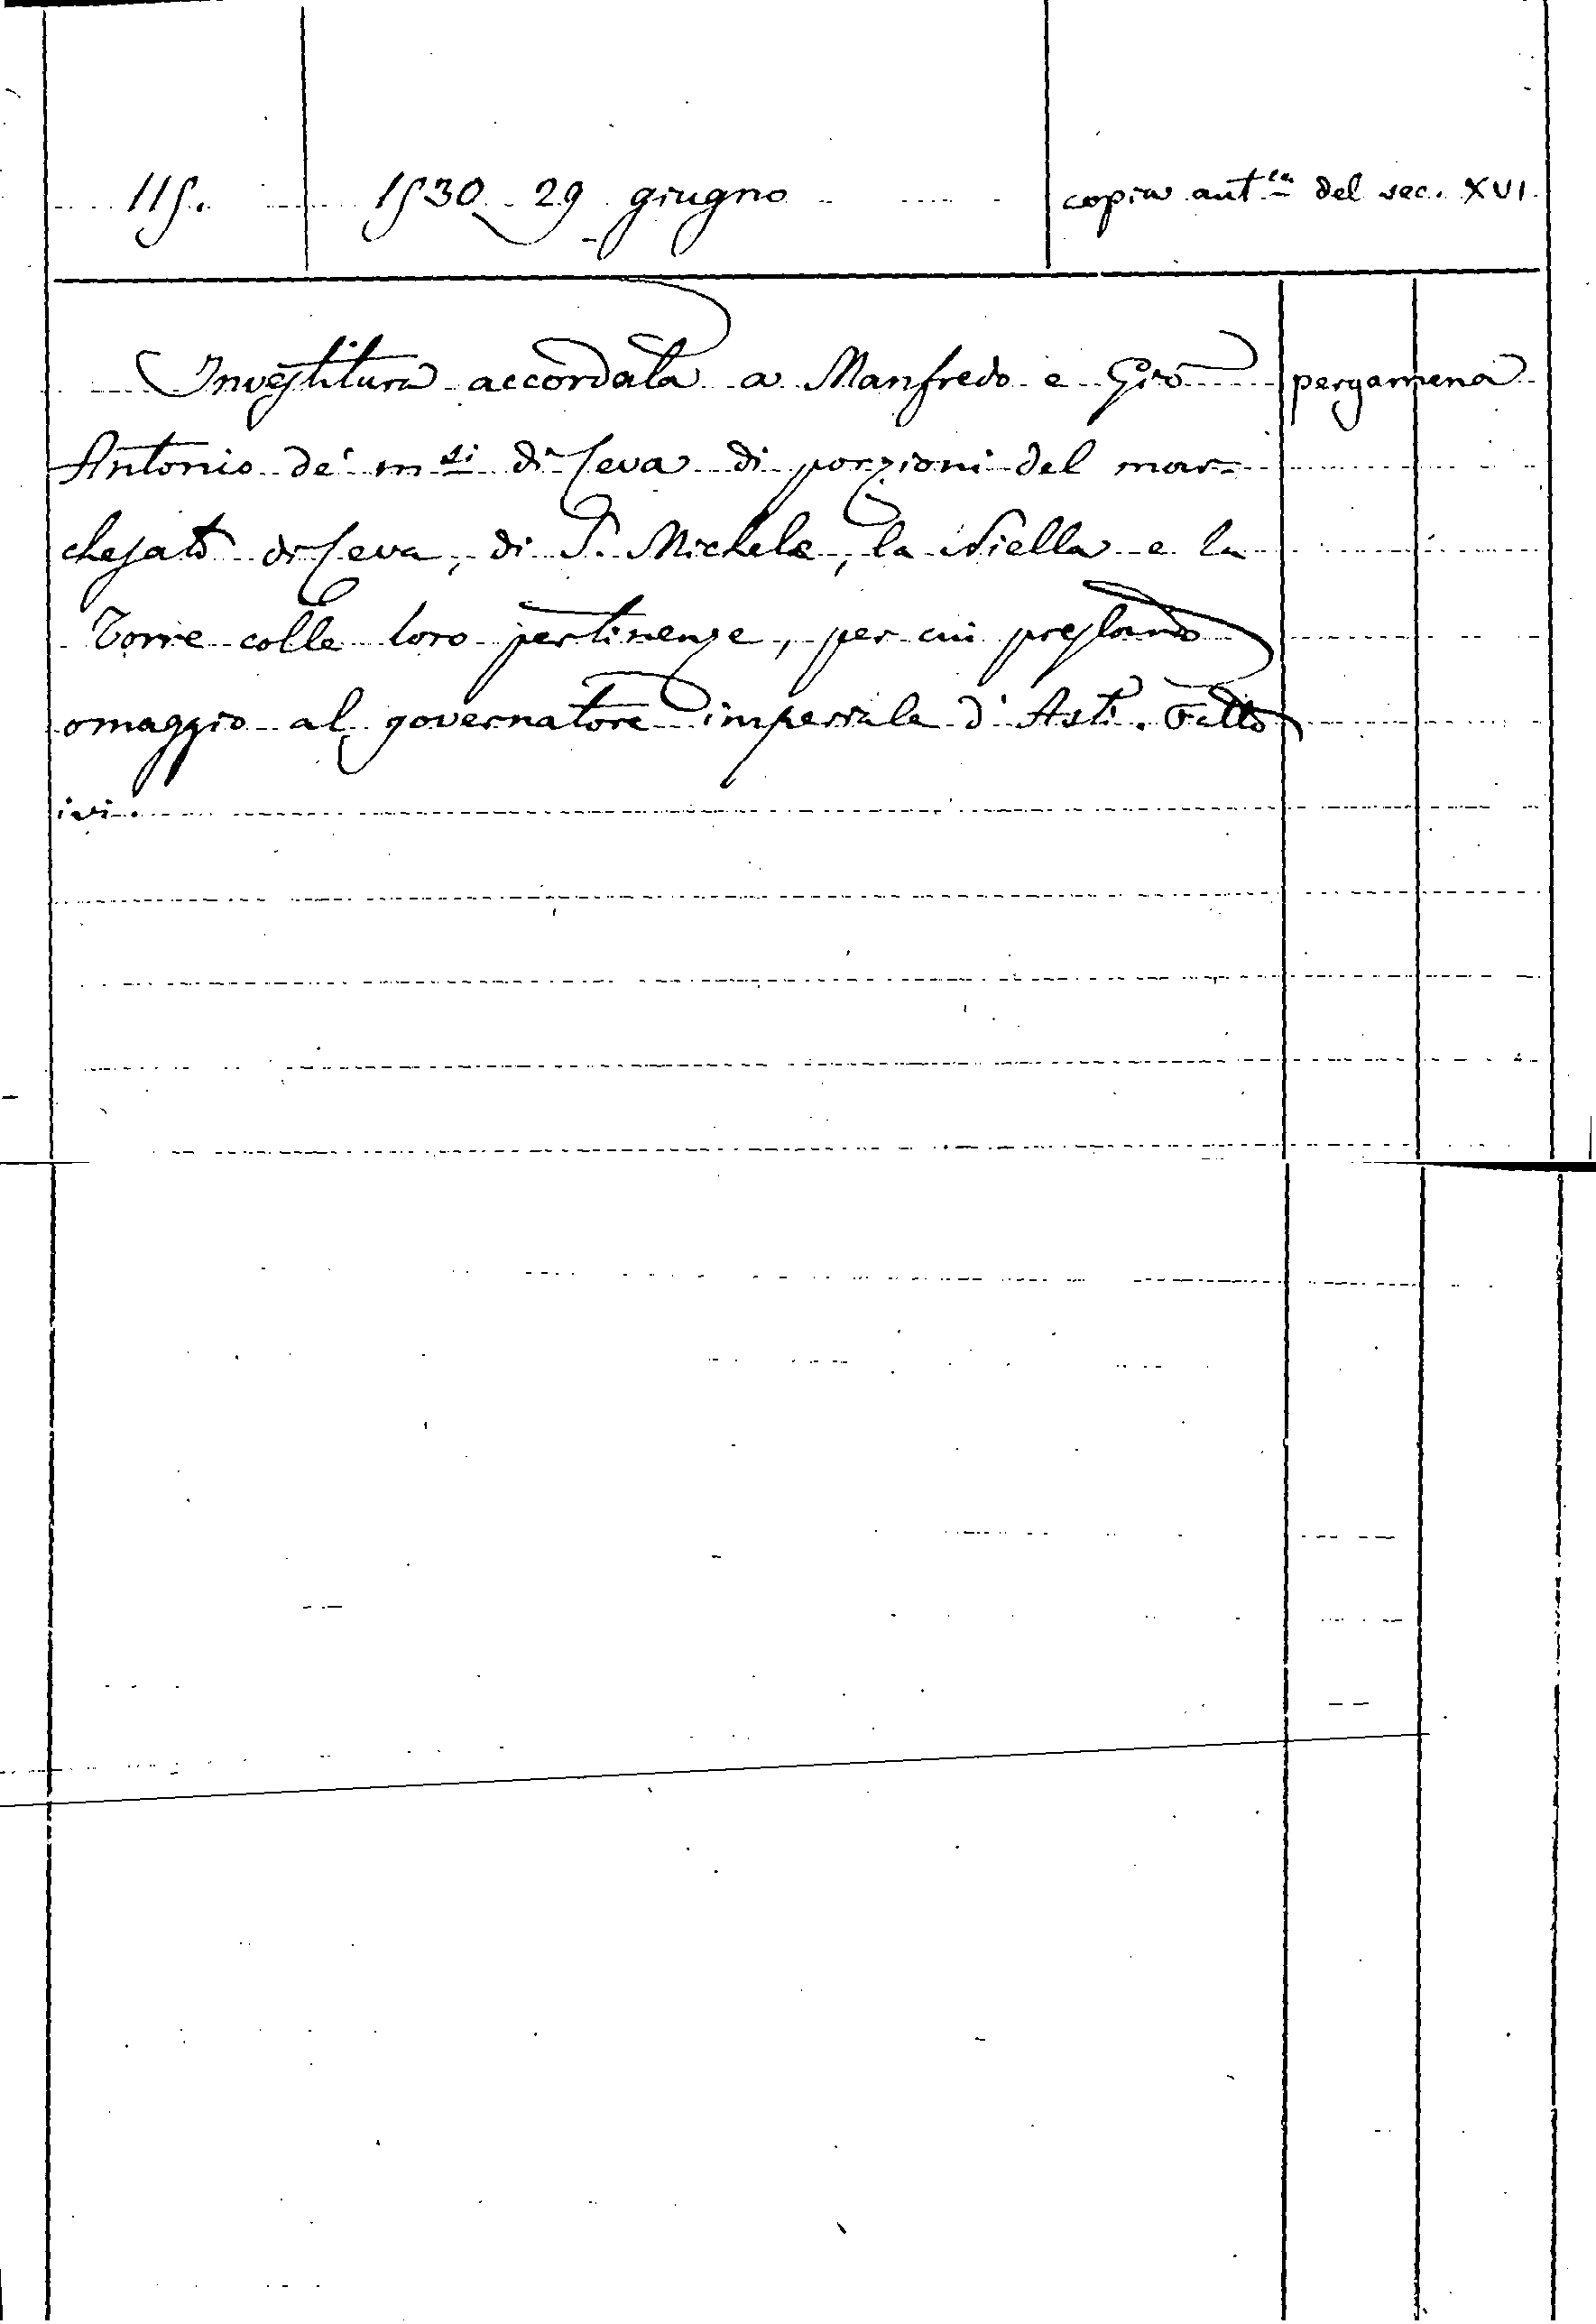 115. 1530 29 giugno copia aut.ca del sec. XVI
Investitura accordata a Manfredo e Gio pergamena
Antonio de' m.si di Ceva di porzioni del mar-
chesato di Ceva, di S. Michele, la Niella e la
Torre colle loro pertinenze, per cui prestano
omaggio al governatore imperiale d'Asti. Fatto
ivi.